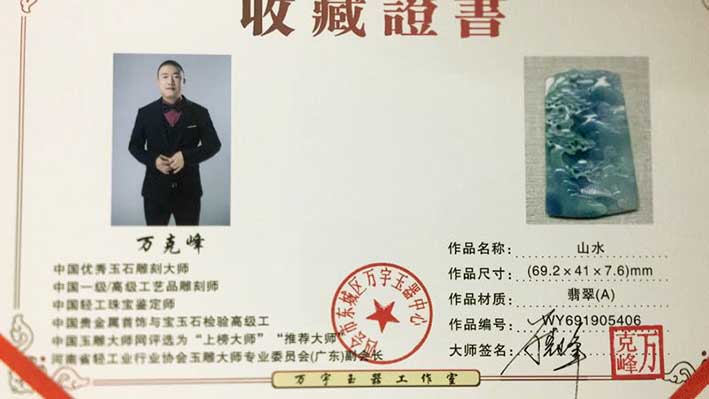 收藏證書
万克峰
中国优秀玉石雕刻大师
中国一级/高级工艺品雕刻师
中国轻工珠宝鉴定师
中国贵金属首饰与宝玉石检验高级工
中国玉雕大师网评选为“上榜大师”“推荐大师”
河南省轻工业行业协会玉雕大师专业委员会(广东)副会长
四会市东城区万宇玉器中心
作品名称: 山水
作品尺寸: (69.2×41×7.6)mm
作品材质: 翡翠(A)
作品编号: WY691905406
大师签名: 万克峰
万克峰
万宇玉器工作室